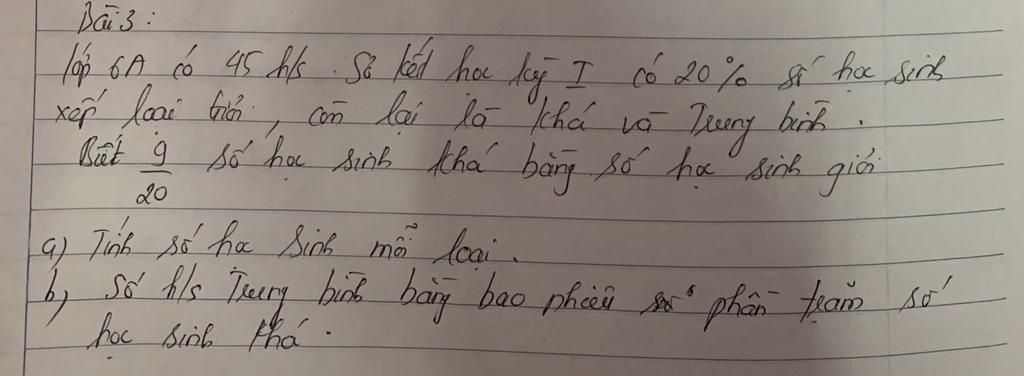 Bài 3:
lớp 6A có 45 h/s. Sơ kết học kỳ I có 20% số học sinh
xếp loại giỏi, còn lại là khá và Trung bình.
Biết 9/20 số học sinh khá bằng số học sinh giỏi
a) Tính số học sinh mỗi loại.
b) Số h/s Trung bình bằng bao phiêu phần trăm số
học sinh khá.